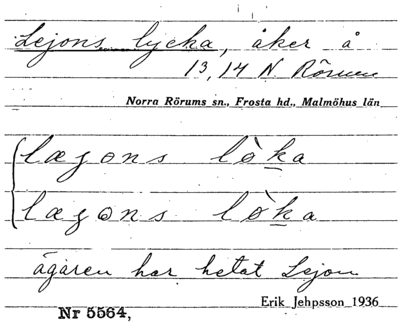 Lejons lycka, åker å
13, 14 N. Rörum
Norra Rörums sn., Frosta hd., Malmöhus län
lægons lò̱ka
lægons lò̱ka
ägaren har hetat Lejon
Erik Jehpsson 1936
Nr 5564,